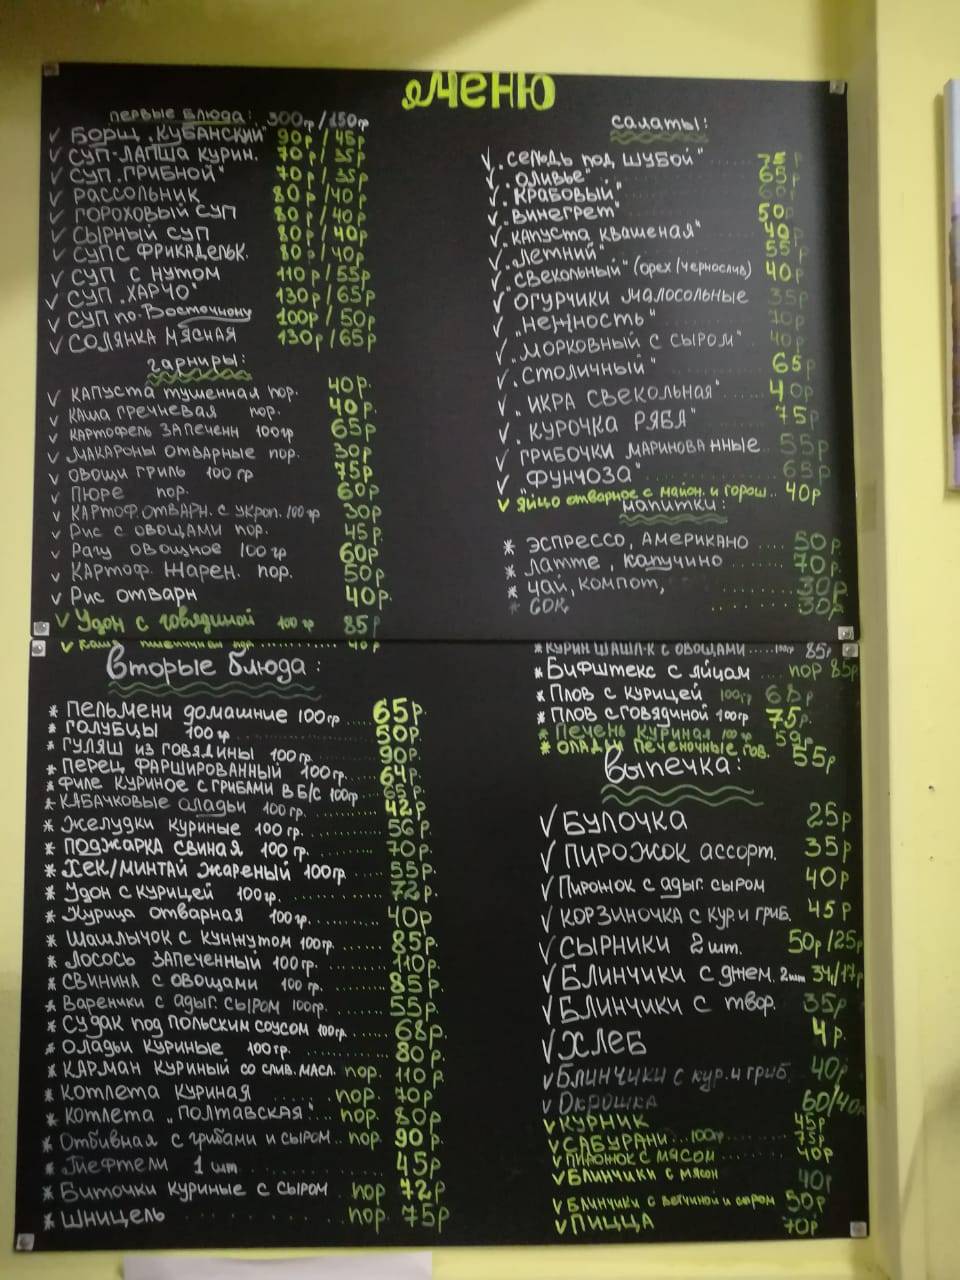 Меню
первые блюда: 300гр/150гр
✓ Борщ „Кубанский" 90р/45р
✓ Суп-лапша курин. 70р/35р
✓ Суп „Грибной" 70р/35р
✓ Рассольник 80р/40р
✓ Гороховый суп 80р/40р
✓ Сырный суп 80р/40р
✓ Суп с фрикадельк. 80р/40р
✓ Суп с нутом 110р/55р
✓ Суп „Харчо" 130р/65р
✓ Суп по-Восточному 100р/50р
✓ Солянка мясная 130р/65р
гарниры:
✓ Капуста тушенная пор. 40р.
✓ Каша гречневая пор. 40р.
✓ Картофель запеченн 100гр 65р
✓ Макароны отварные пор. 30р
✓ Овощи гриль 100 гр 75р
✓ Пюре пор. 60р
✓ Картоф. отварн. с укроп. 100гр 30р
✓ Рис с овощами пор. 45р.
✓ Рагу овощное 100 гр 60р
✓ Картоф. жарен. пор. 50р.
✓ Рис отварн 40р.
✓ Удон с говядиной 100 гр 85р
✓ Каша пшеничная пор. 40р
салаты:
✓ „Сельдь под шубой" 75р
✓ „Оливье" 65р
✓ „Крабовый" 60р
✓ „Винегрет" 50р
✓ „Капуста квашеная" 40р
✓ „Летний" 55р
✓ „Свекольный" (орех/чернослив) 40р
✓ Огурчики малосольные 35р
✓ „Нежность" 70р
✓ „Морковный с сыром" 40р
✓ „Столичный" 65р
✓ „Икра свекольная" 40р
✓ „Курочка Ряба" 75р
✓ Грибочки маринованные 55р
✓ „Фунчоза" 65р
✓ Яйцо отварное с майон. и горош.. 40р
напитки:
* Эспрессо, Американо .... 50р.
* Латте, капучино ....... 70р.
* Чай, компот, ........ 30р
* Сок, ........ 30р
Вторые блюда:
* Пельмени домашние 100гр ..... 65р.
* Голубцы 100гр 50р.
* Гуляш из говядины 100гр. 90р.
* Перец фаршированный 100гр. 64р.
* Филе куриное с грибами в б/с 100гр. 65р.
* Кабачковые оладьи 100гр. 42р
* Желудки куриные 100гр. 56р.
* Поджарка свиная 100гр. 70р.
* Хек/минтай жареный 100гр 55р.
* Удон с курицей 100гр. 72р.
* Курица отварная 100гр. 40р.
* Шашлычок с кунжутом 100гр. 85р.
* Лосось запеченный 100гр. 110р.
* Свинина с овощами 100 гр. 85р.
* Вареники с адыг. сыром 100гр. 55р.
* Судак под польским соусом 100гр. 68р.
* Оладьи куриные 100гр. 80р.
* Карман куриный со слив. масл. пор. 110р
* Котлета куриная .... пор. 70р.
* Котлета „Полтавская" .. пор. 80р.
* Отбивная с грибами и сыром .. пор. 90р.
* Тефтели 1шт 45р
* Биточки куриные с сыром . пор 72р.
* Шницель пор. 75р
* Курин шашл-к с овощами ..... 100гр 85р.
* Бифштекс с яйцом .... пор 85р
* Плов с курицей 100гр 68р
* Плов с говядиной 100гр 75р.
* Печень куриная 100 гр 59р.
* Оладьи печеночные гов. 55р
Выпечка:
✓ Булочка 25р
✓ Пирожок ассорт. 35р
✓ Пирожок с адыг. сыром 40р
✓ Корзиночка с кур. и гриб. 45р
✓ Сырники 2шт. 50р/25р
✓ Блинчики с джем. 2шт 34/17р
✓ Блинчики с твор. 35р
✓ Хлеб 4р.
✓ Блинчики с кур. и гриб. 40р.
✓ Окрошка 60/40р
✓ Курник 45р
✓ Сабурани ... 100гр 75р
✓ Пирожок с мясом 40р
✓ Блинчики с мясом 40р
✓ Блинчики с ветчиной и сыром 50р
✓ Пицца 70р